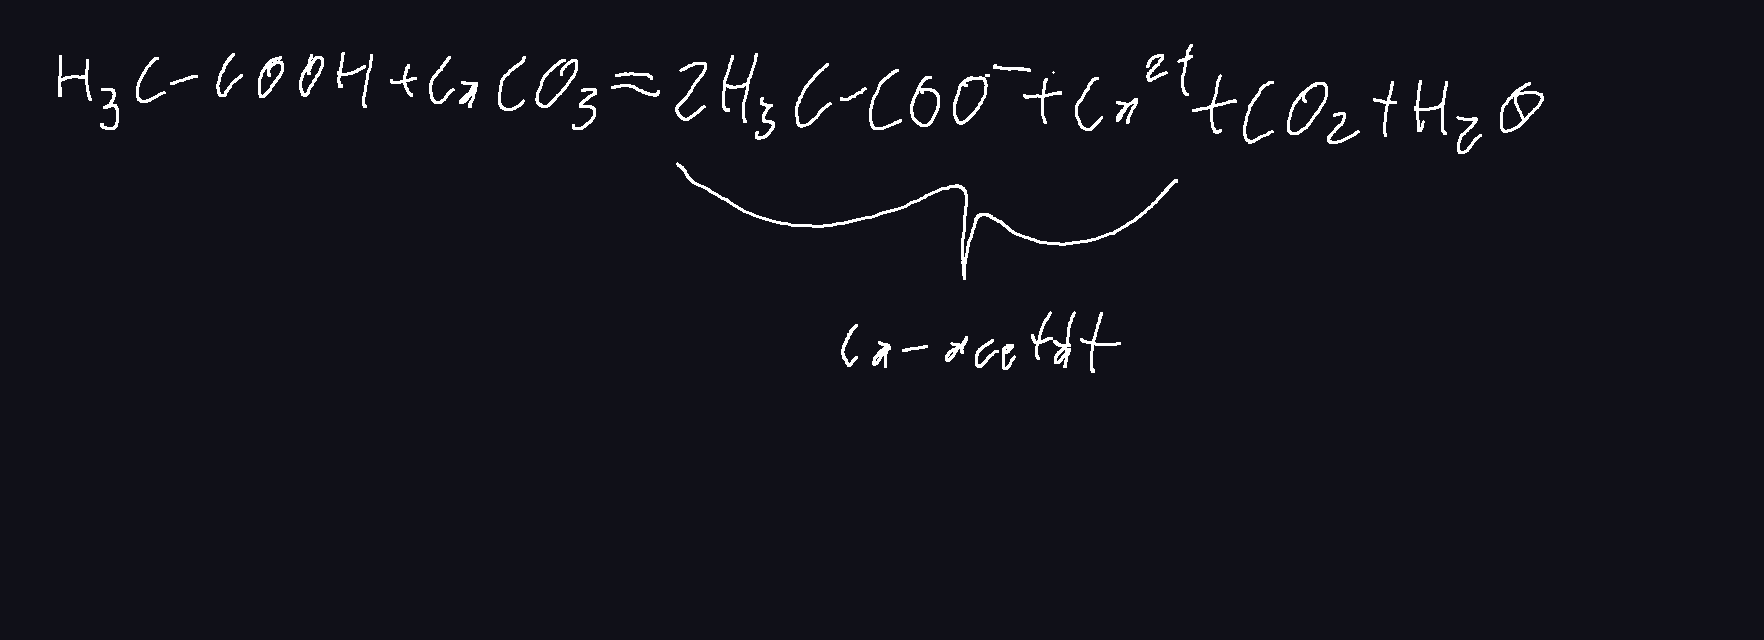 H₃C-COOH+CaCO₃=2H₃C-COO⁻+Ca²⁺+CO₂+H₂O
Ca-acetat